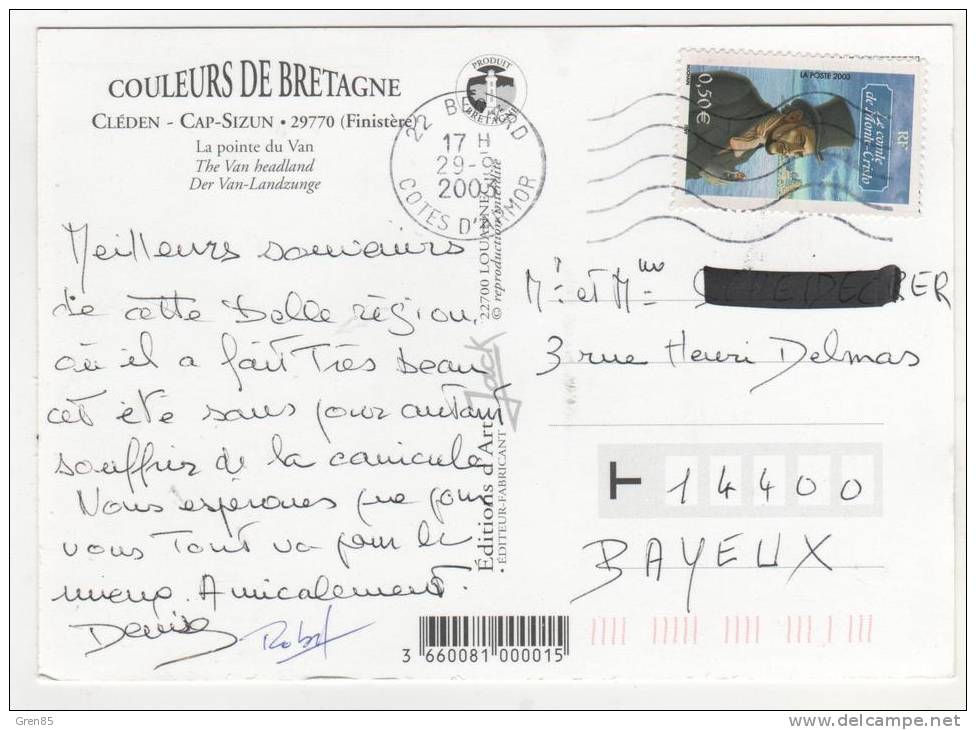 COULEURS DE BRETAGNE
CLÉDEN - CAP-SIZUN • 29770 (Finistère)
La pointe du Van
The Van headland
Der Van-Landzunge
PRODUIT
BRETAGNE
22
17 H
29-
2003
COTES D'ARMOR
LA POSTE 2003
0,50€
RF
Le comte
de Monte-Cristo
Meilleurs souvenirs
de cette Belle région,
où il a fait Très Beau
cet été sans pour autant
souffrir de la canicule
Nous espérons que pour
vous Tout va pour le
mieux. Amicalement.
Denise Robert
22700 LOUANNEC
© reproduction interdite
Jack
Éditions d'Art
• ÉDITEUR-FABRICANT •
Mr et Mme
3 rue Henri Delmas
T 14400
BAYEUX
3 660081 000015
Gren85
www.delcampe.net